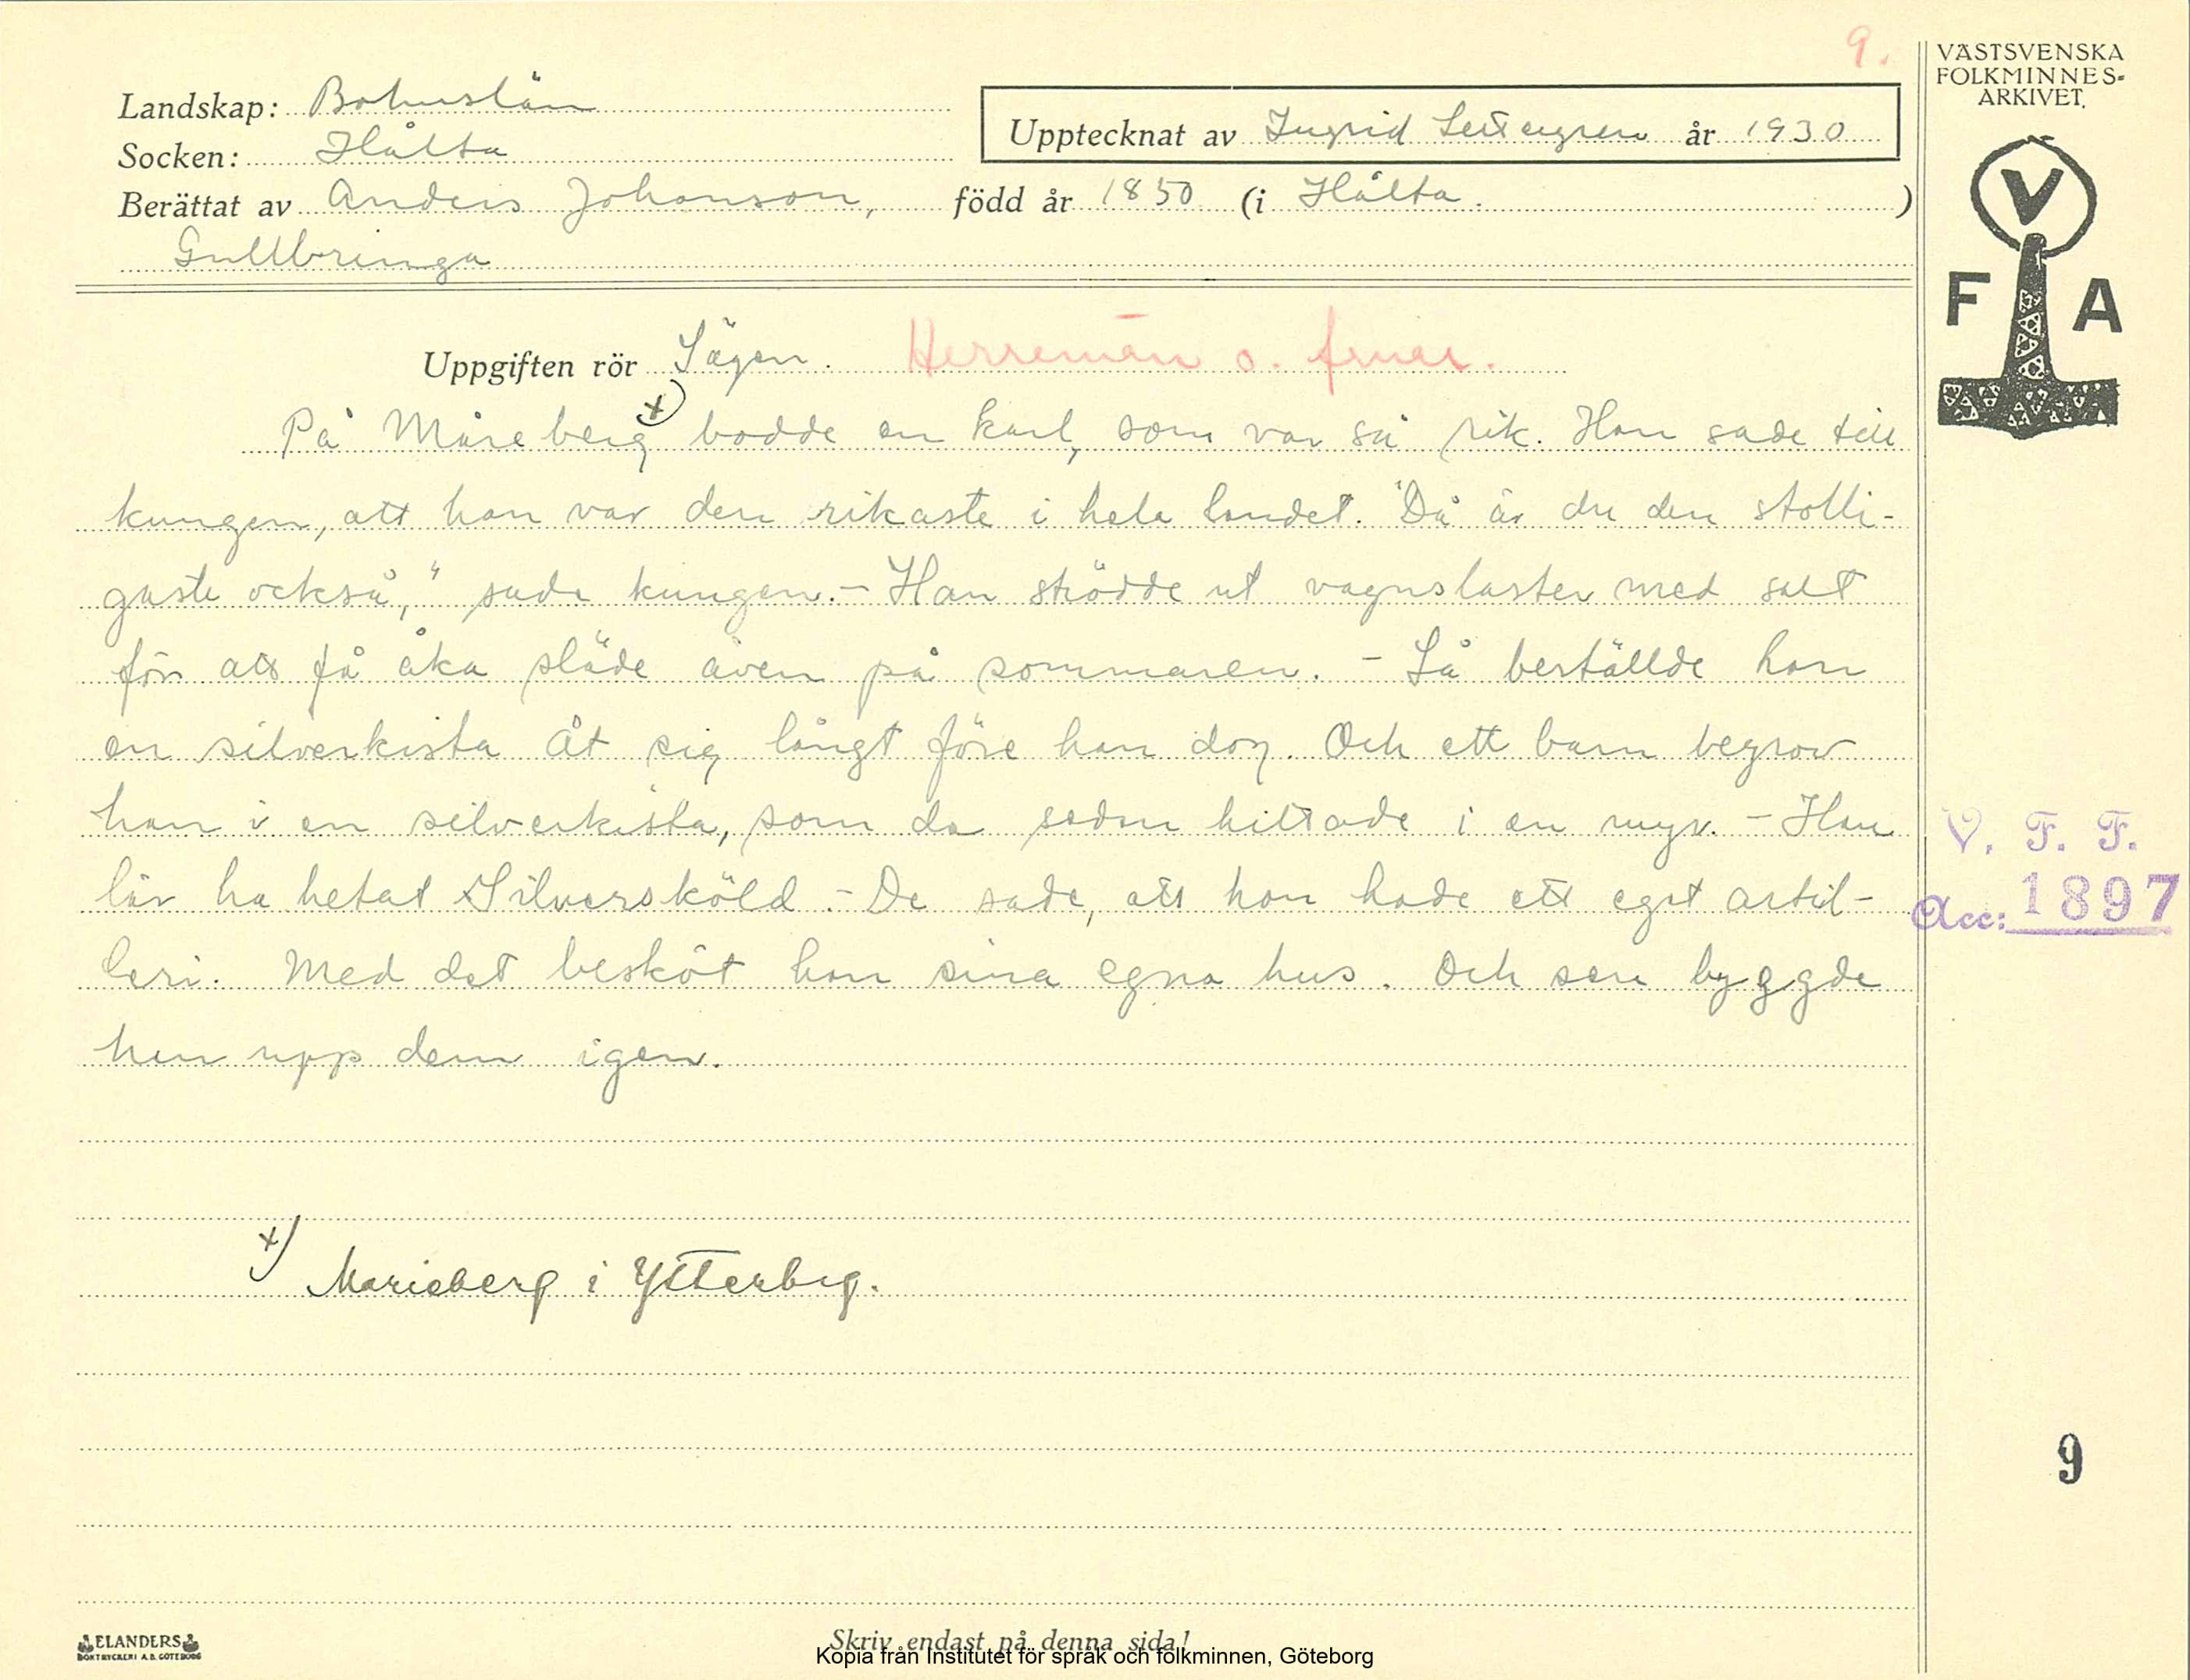 9.
VÄSTSVENSKA
FOLKMINNES-
ARKIVET.
Landskap: Bohuslän
Upptecknat av Ingrid år 1930
Socken: Hålta
Berättat av Anders Johanson, född år 1850 (i Hålta.)
Gullbringa
V
F A
Uppgiften rör Sägen. Herremän o. fruar.
På Måreberg x) bodde en karl, som var så rik. Han sade till
kungen, att han var den rikaste i hela landet. "Då är du den stolli-
gaste också," sade kungen. - Han strödde ut vagnslaster med salt
för att få åka släde även på sommaren. - Så beställde han
en silverkista åt sig långt före han dog. Och ett barn begrov
han i en silverkista, som da sedan hittade i en myr. - Han
lär ha hetat Silversköld. - De sade, att han hade ett eget artil-
leri. Med det besköt han sina egna hus. Och sen byggde
han upp dem igen.
V. F. F.
Acc: 1897
x) Marieberg i Ytterby.
9
ELANDERS
BOKTRYCKERI A.B. GÖTEBORG
Skriv endast på denna sida!
Kopia från Institutet för språk och folkminnen, Göteborg